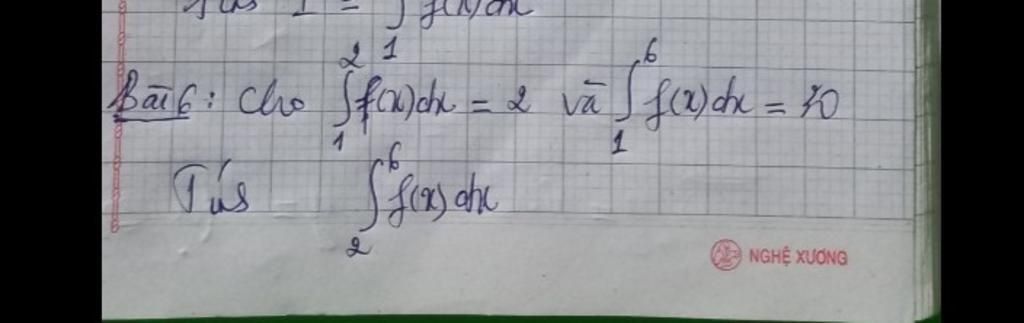 I = ∫₁ f(x)dx
Bài 6: Cho ∫₁² f(x)dx = 2 và ∫₁⁶ f(x)dx = 10
Tính ∫₂⁶ f(x)dx
NGHỆ XƯƠNG